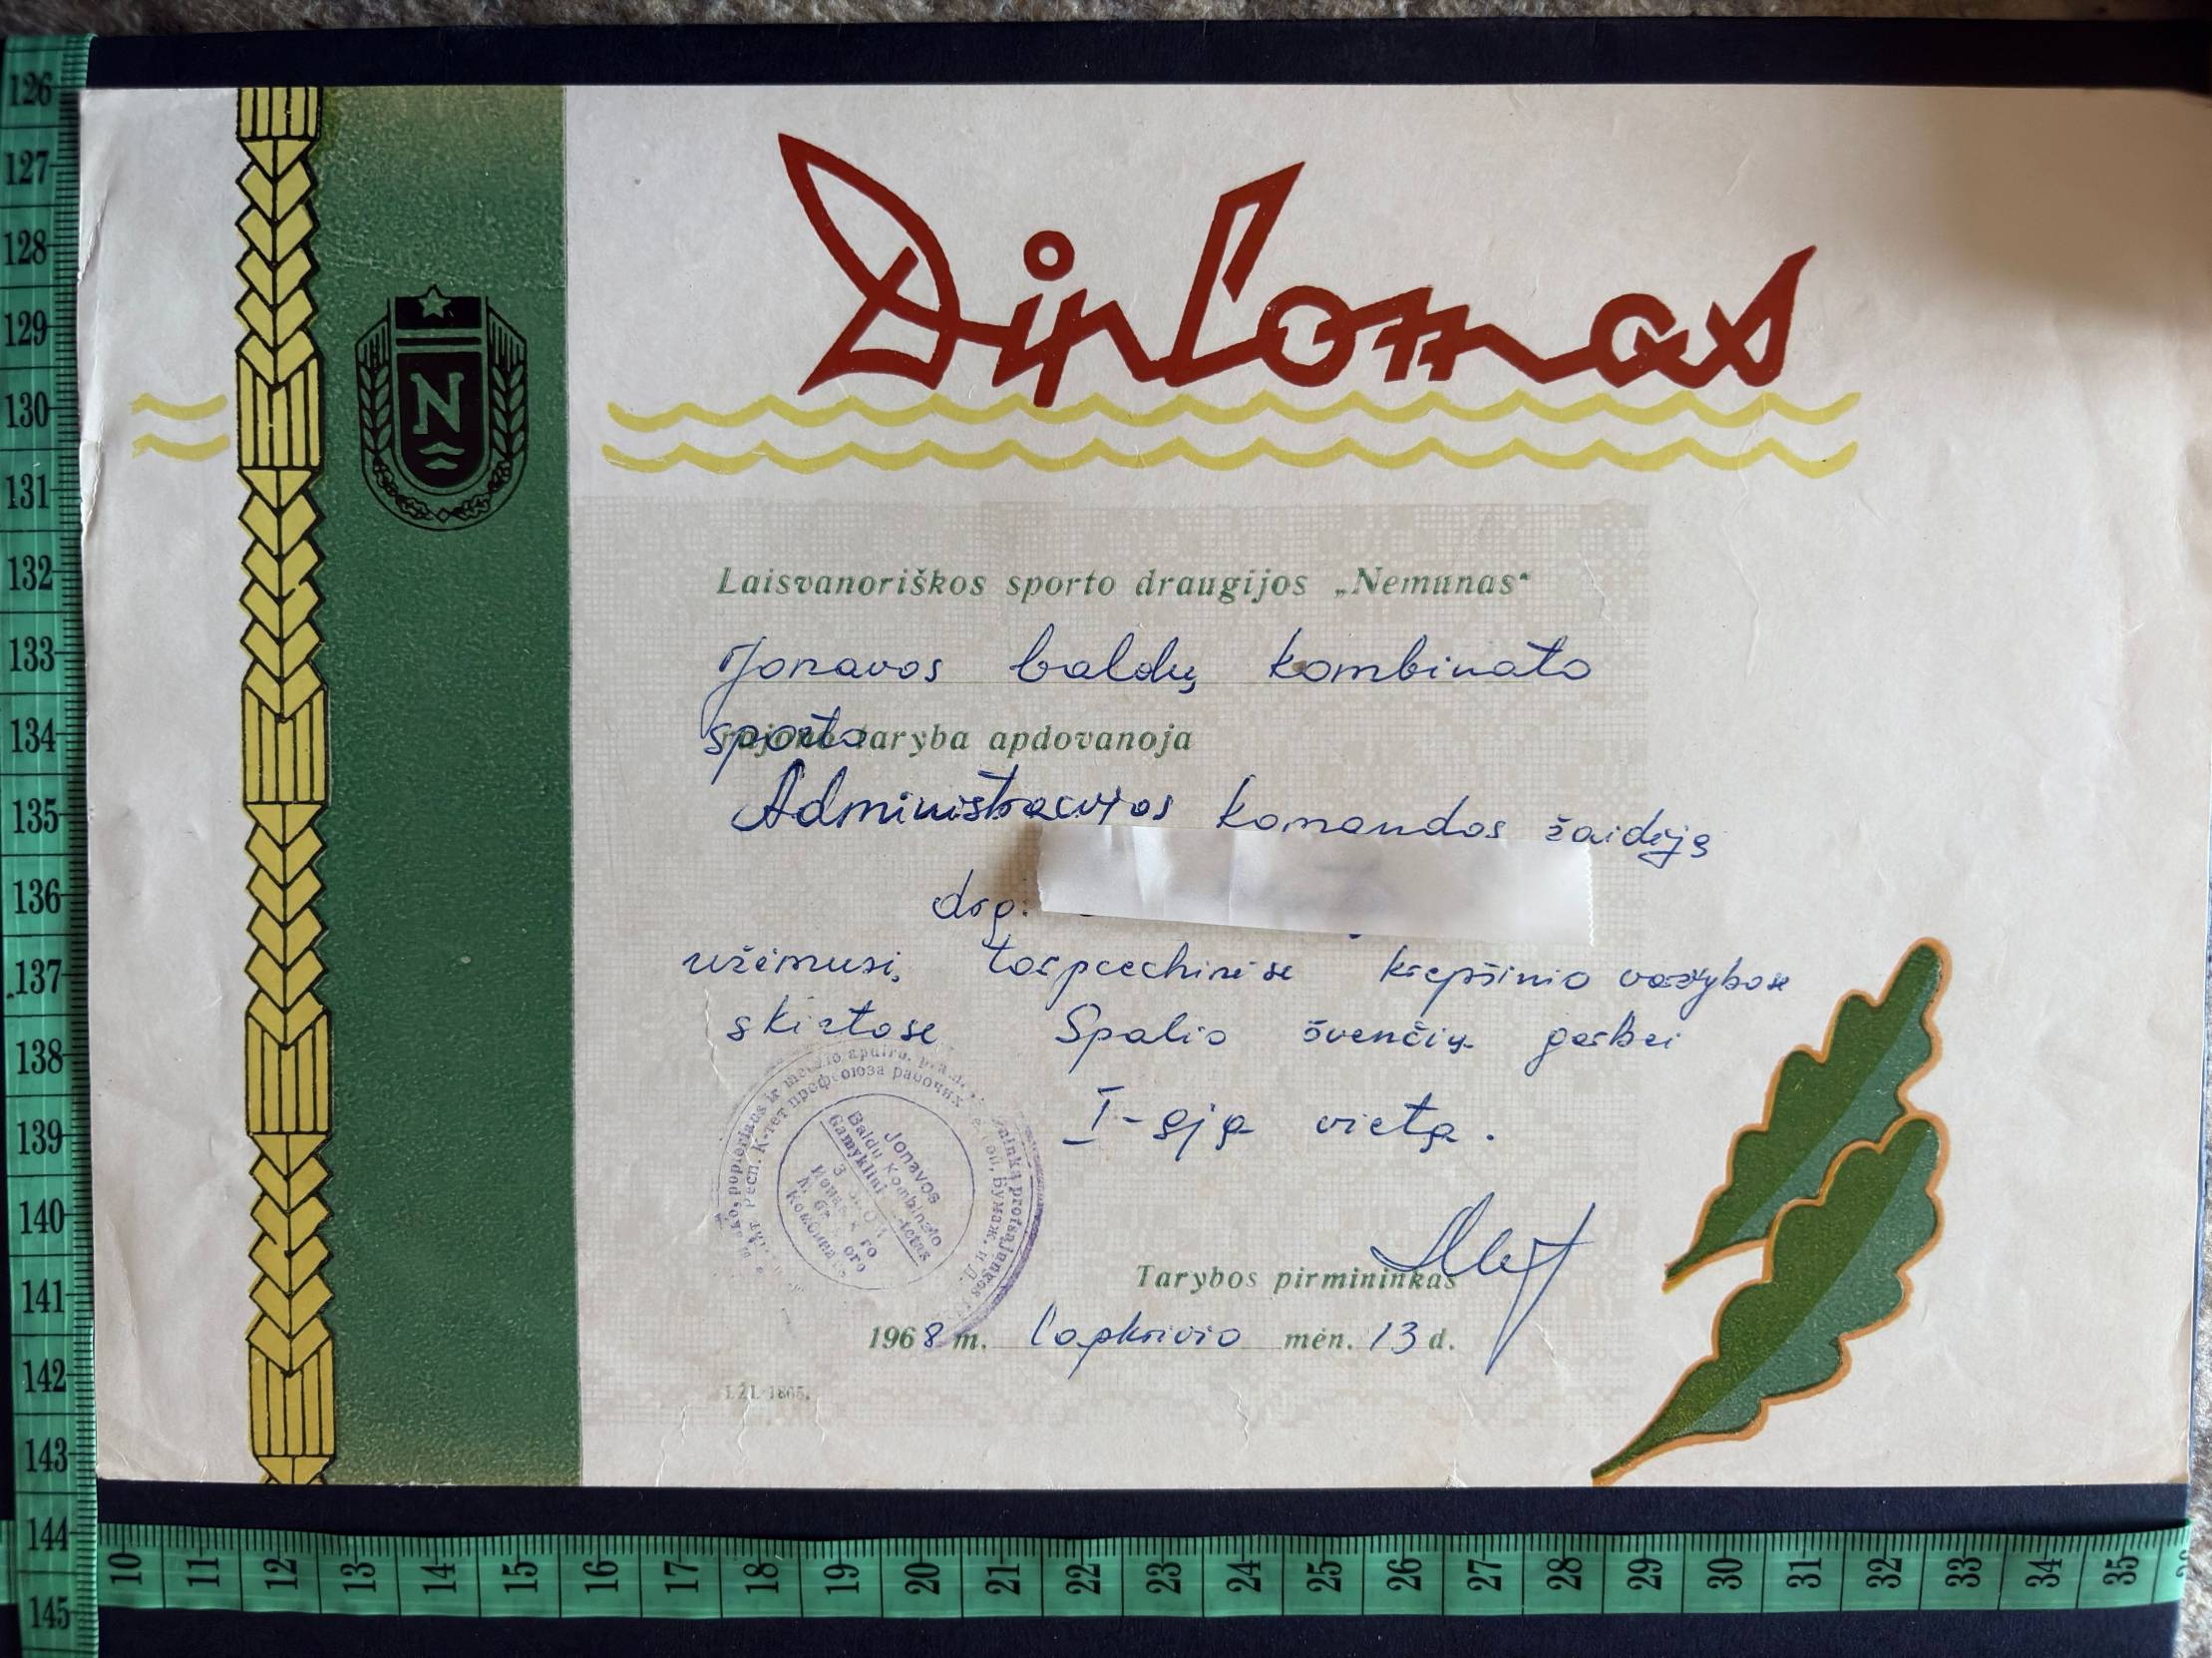 Diplomas
N
Laisvanoriškos sporto draugijos „Nemunas“
Jonavos baldų kombinato
sporto taryba apdovanoja
Administracijos komandos žaidėją
drg.
užėmusį, tarpcechinėse krepšinio varžybose
skirtose Spalio švenčių garbei
I-ąją vietą.
Jonavos
Baldų Kombinato
Gamyklini
Tarybos pirmininkas
1968 m. lapkričio mėn. 13 d.
LŽL 1865.
126
127
128
129
130
131
132
133
134
135
136
137
138
139
140
141
142
143
144
145
10 11 12 13 14 15 16 17 18 19 20 21 22 23 24 25 26 27 28 29 30 31 32 33 34 35